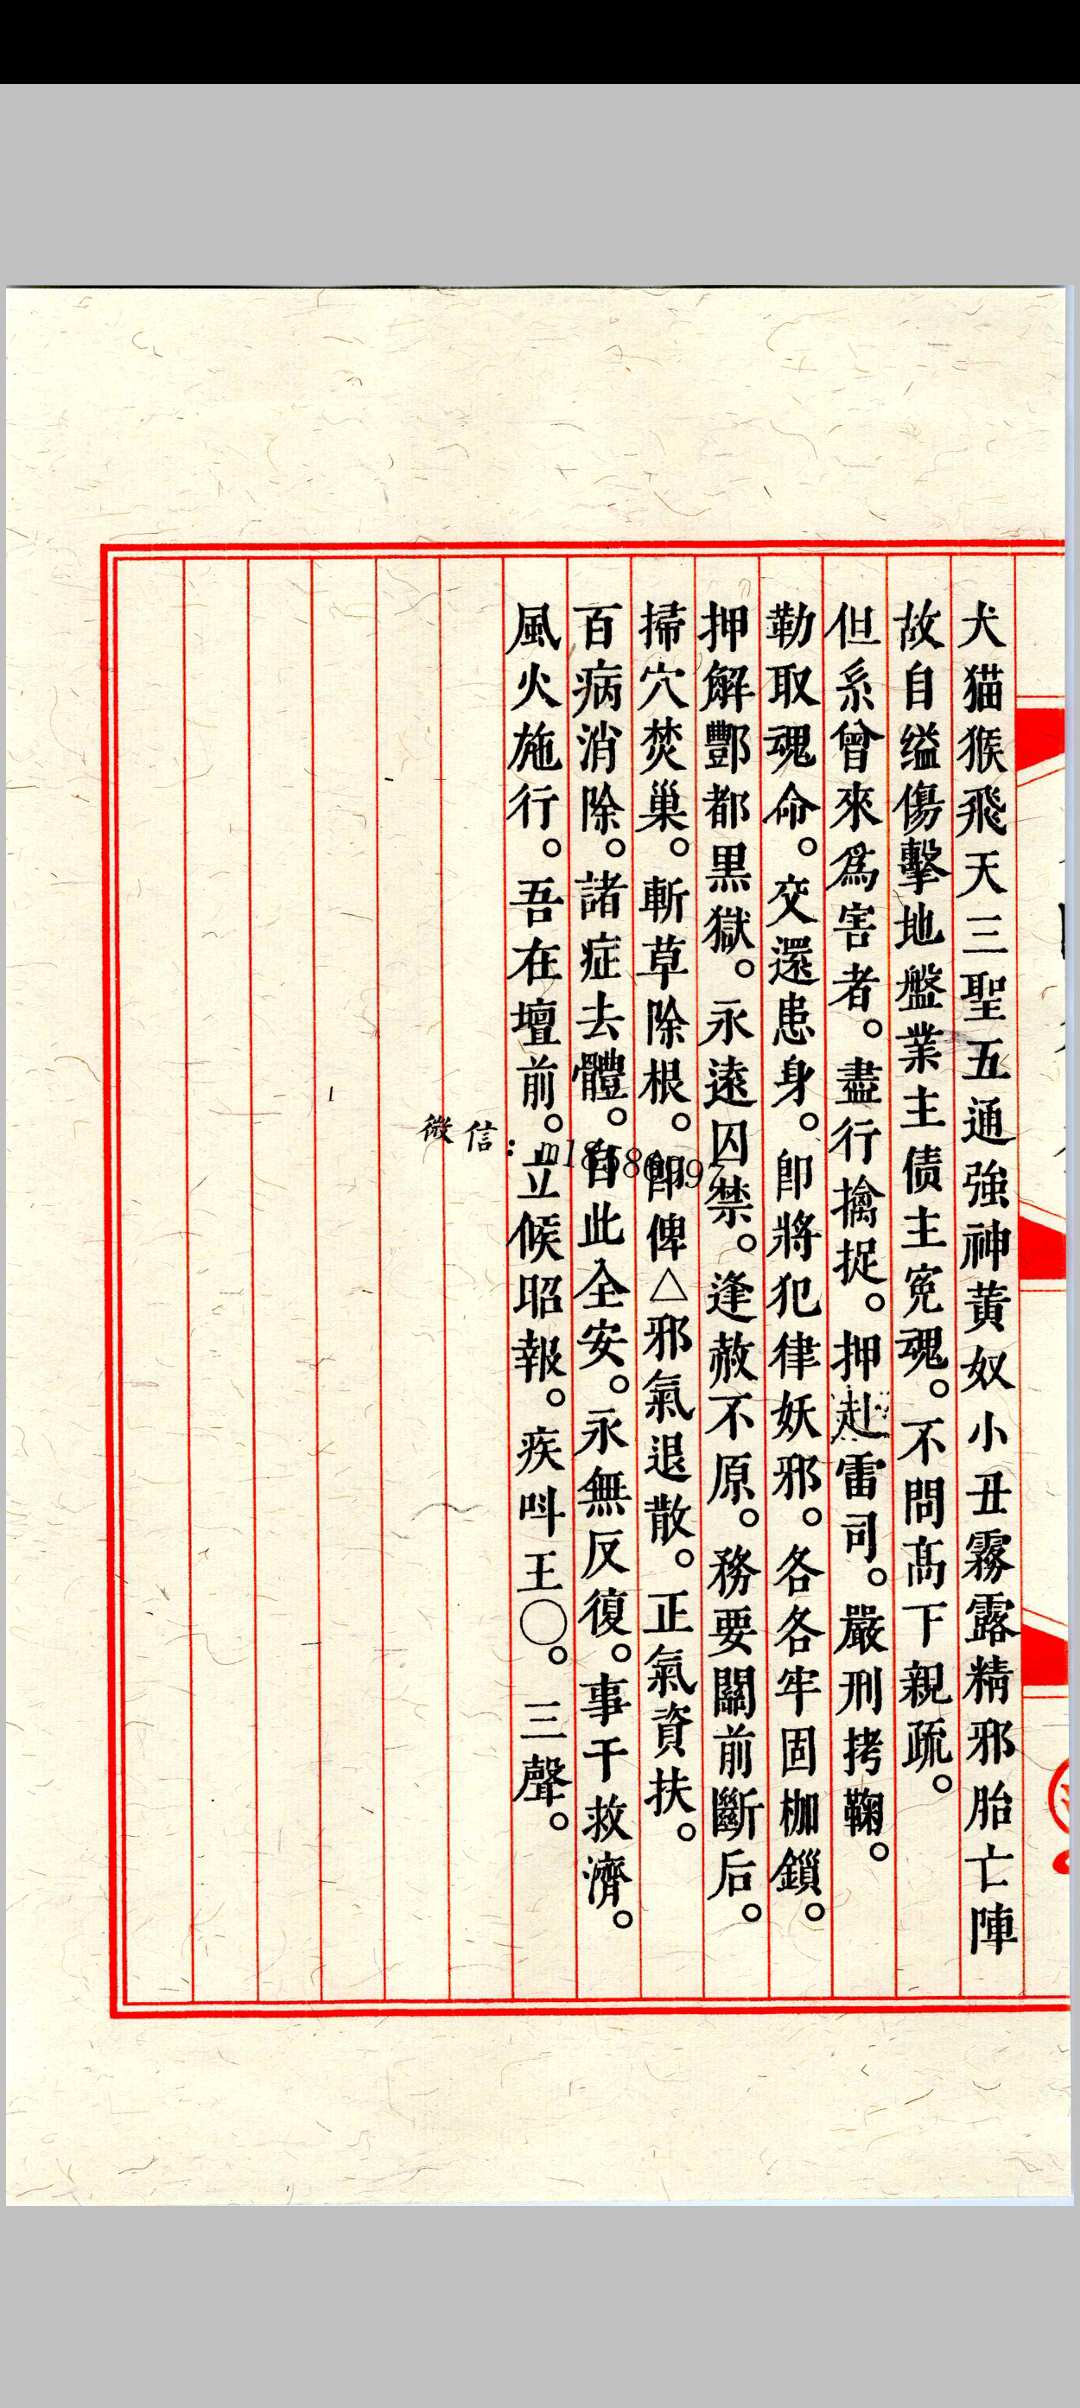 犬猫猴飛天三聖五通強神黃奴小丑霧露精邪胎亡陣
故自缢傷擊地盤業主债主寃魂。不問髙下親疏。
但系曾來爲害者。盡行擒捉。押赴雷司。嚴刑拷鞠。
勒取魂命。交還患身。卽將犯律妖邪。各各牢固枷鎖。
押解酆都黑獄。永遠囚禁。逢赦不原。務要關前斷后。
掃穴焚巢。斬草除根。卽俾△邪氣退散。正氣資扶。
百病消除。諸症去體。自此全安。永無反復。事干救濟。
風火施行。吾在壇前。立候昭報。疾呌王〇。三聲。
微信：